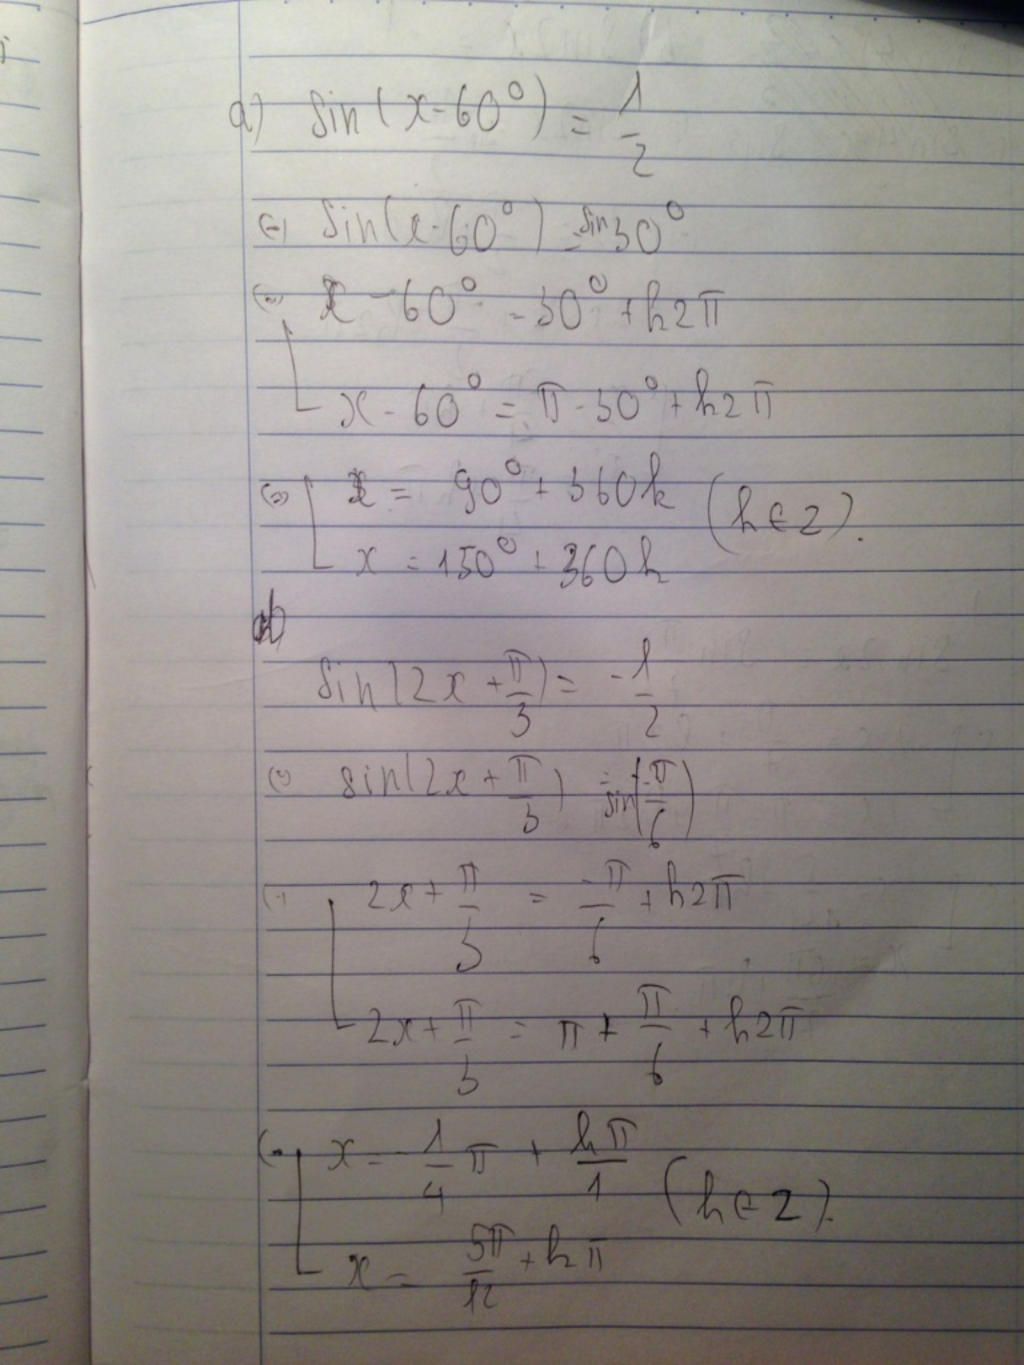 a) sin(x-60°) = 1/2
⇔ sin(x-60°) = sin30°
⇔ x - 60° = 30° + k2π
x - 60° = π - 30° + k2π
⇔ x = 90° + 360k (k ∈ Z).
x = 150° + 360k
b)
sin(2x + π/3) = -1/2
⇔ sin(2x + π/3) = sin(-π/6)
⇔ 2x + π/3 = -π/6 + k2π
2x + π/3 = π + π/6 + k2π
⇔ x = -1/4 π + kπ/1 (k ∈ Z).
x = 5π/12 + kπ